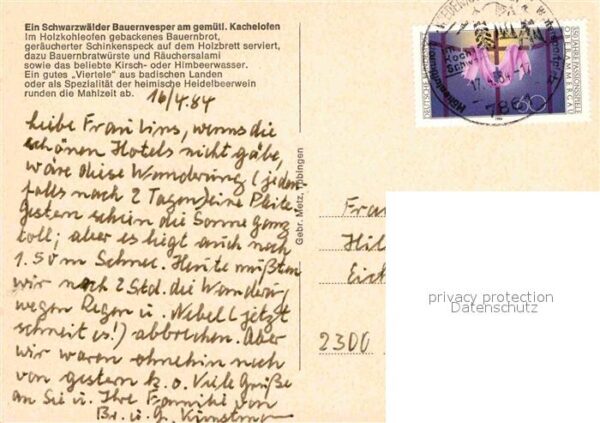 Ein Schwarzwälder Bauernvesper am gemütl. Kachelofen
Im Holzkohleofen gebackenes Bauernbrot,
geräucherter Schinkenspeck auf dem Holzbrett serviert,
dazu Bauernbratwürste und Räuchersalami
sowie das beliebte Kirsch- oder Himbeerwasser.
Ein gutes „Viertele" aus badischen Landen
oder als Spezialität der heimische Heidelbeerwein
runden die Mahlzeit ab.
16/4.84
Liebe Frau Lins, wenns die
schönen Hotels nicht gäbe,
wäre diese Wanderung (jeden-
falls nach 2 Tagen) eine Pleite.
Gestern schien die Sonne ganz
toll; aber es liegt auch noch
1.50 m Schnee. Heute mußten
wir nach 2 Std. die Wanderung
wegen Regen u. Nebel (jetzt
schneit es!) abbrechen. Aber
wir waren ohnehin noch
von gestern k.o. Viele Grüße
an Sie u. Ihre Familie von
Br. u. G.
Gebr. Metz, Tübingen
Fra
Hil
2300
350 JAHRE PASSIONSSPIELE
OBERAMMERGAU
DEUTSCHE
60
7861
privacy protection
Datenschutz